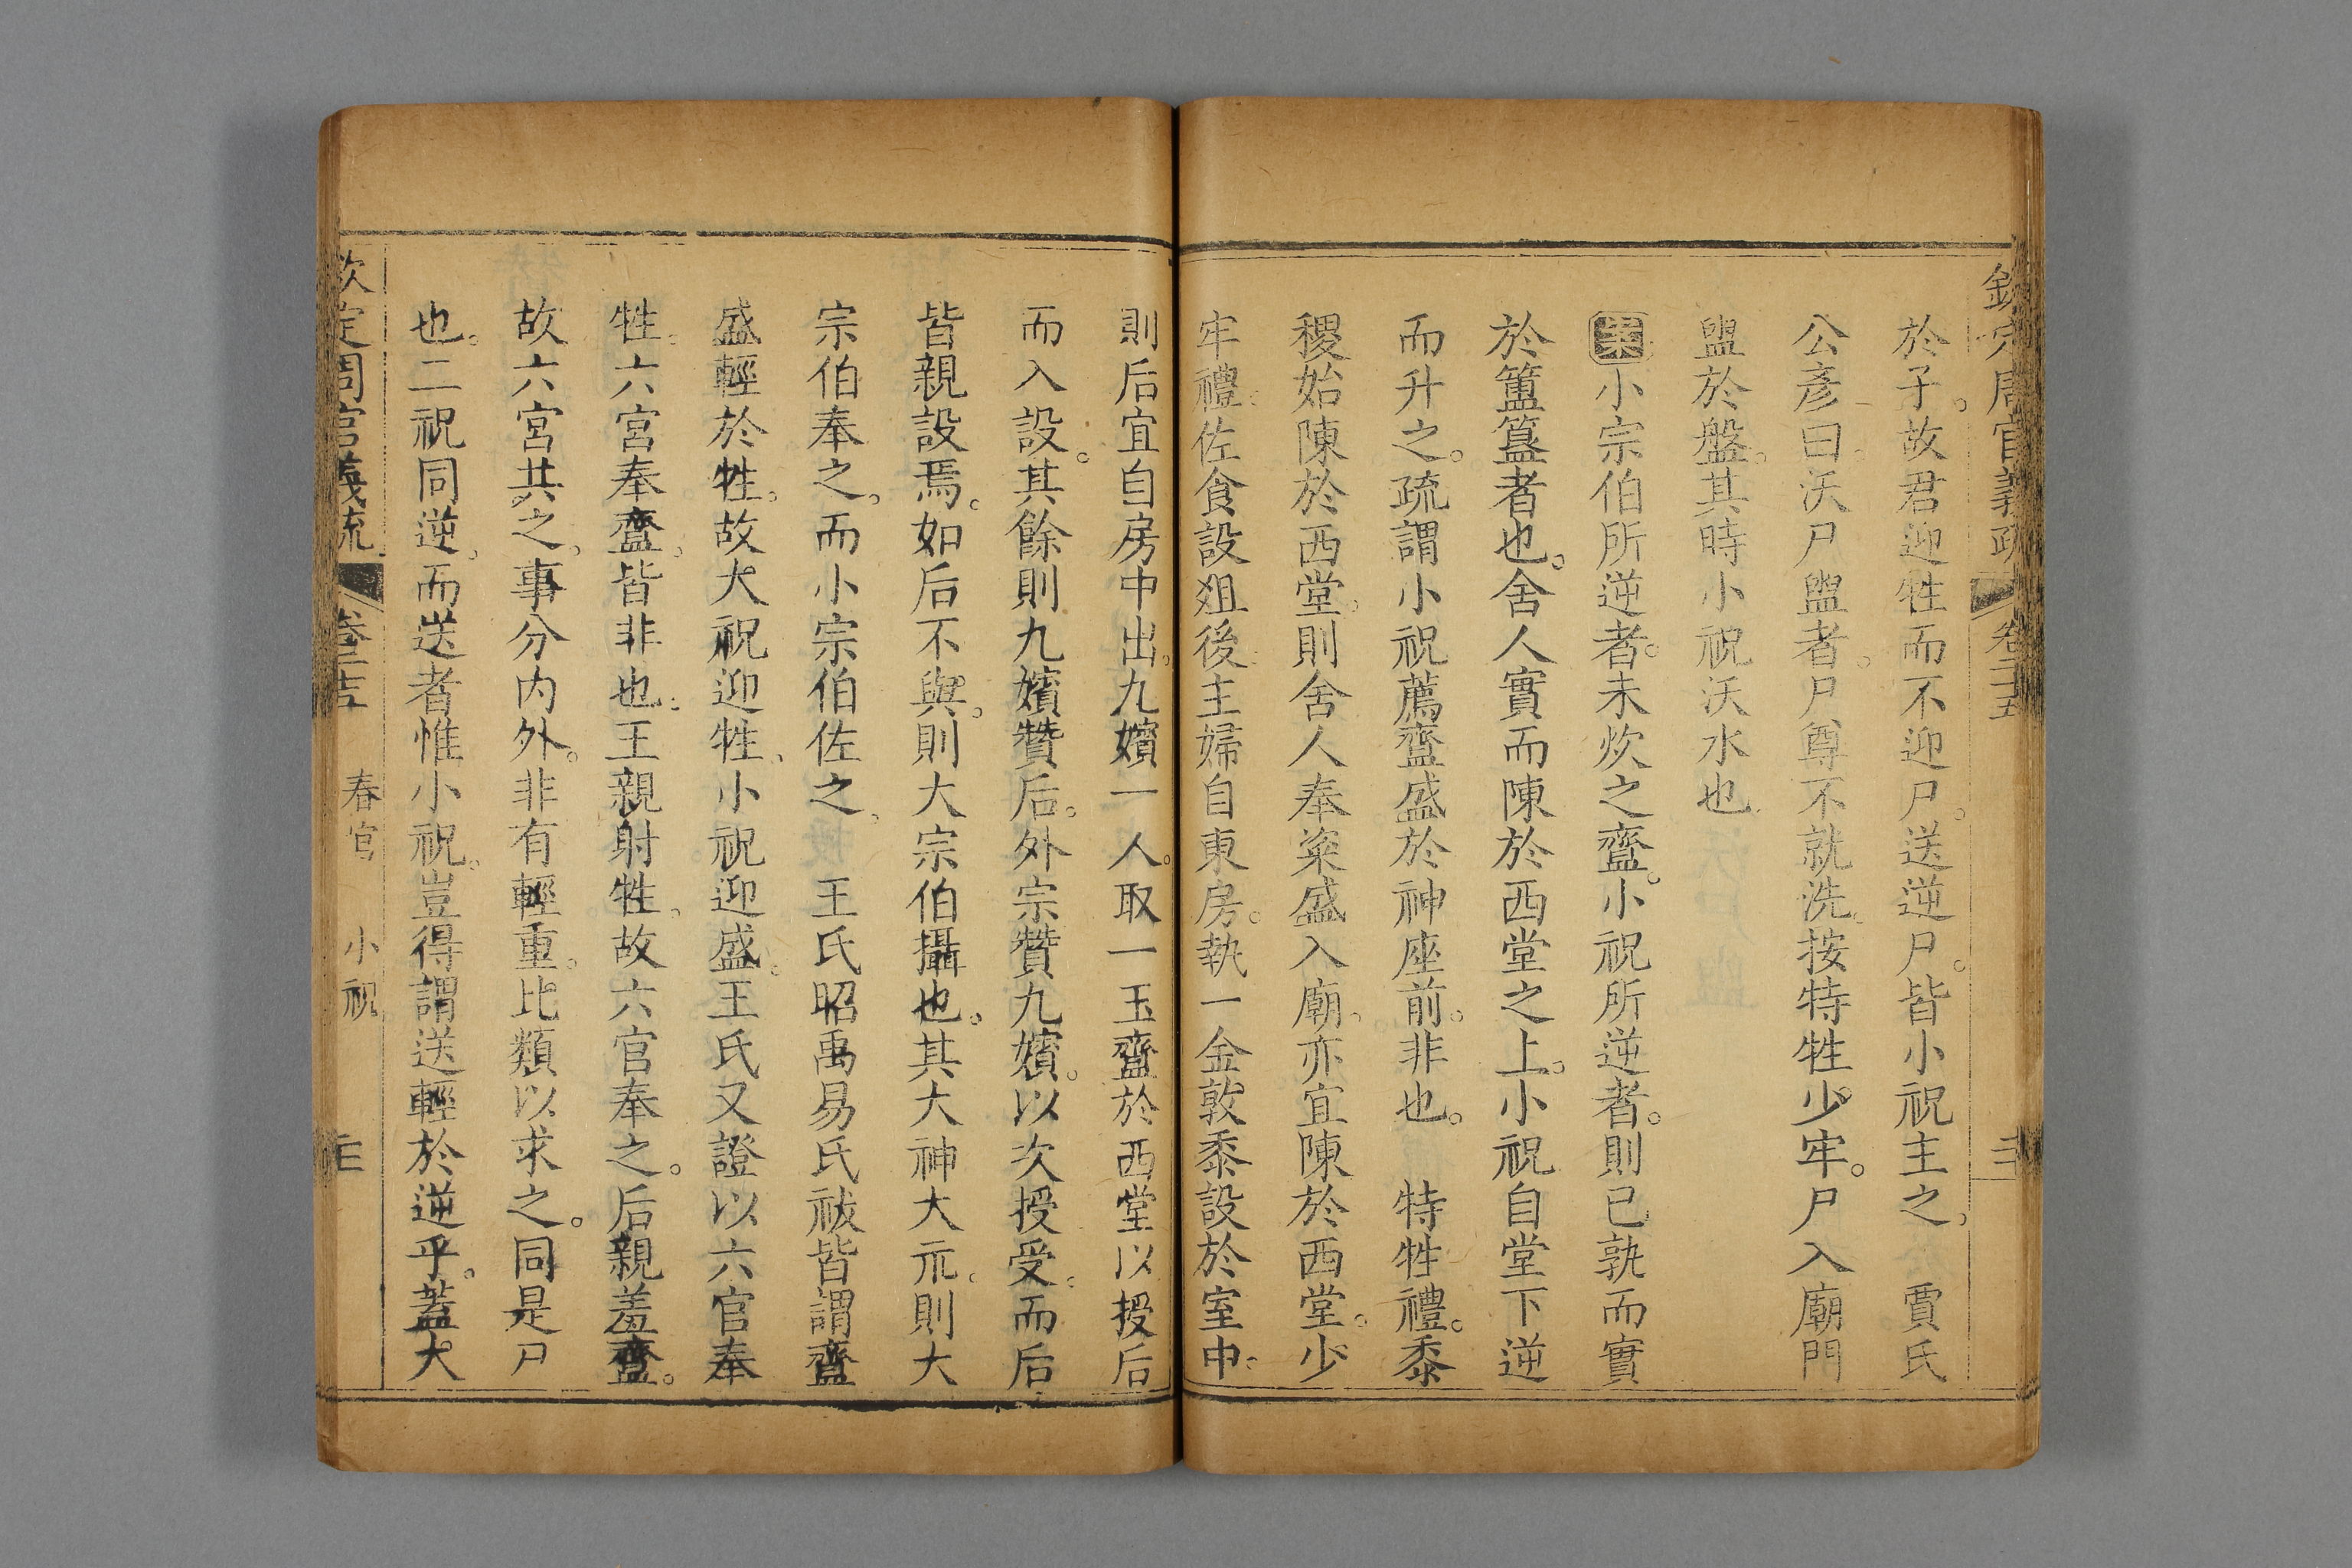 欽定周官義疏 卷二十五
於子。故君迎牲而不迎尸。送逆尸。皆小祝主之。 賈氏
公彥曰。沃尸盥者。尸尊不就洗。按特牲少牢。尸入廟門
盥於盤。其時小祝沃水也
案小宗伯所逆者。未炊之齍。小祝所逆者。則已孰而實
於簠簋者也。舍人實而陳於西堂之上。小祝自堂下逆
而升之。疏謂小祝薦齍盛於神座前。非也。 特牲禮。黍
稷始陳於西堂。則舍人奉粢盛入廟。亦宜陳於西堂。少
牢禮。佐食設俎後。主婦自東房。執一金敦黍設於室中。
則后宜自房中出。九嬪一人。取一玉齍於西堂以授后
而入設。其餘則九嬪贊后。外宗贊九嬪。以次授受。而后
皆親設焉。如后不與。則大宗伯攝也。其大神大示。則大
宗伯奉之。而小宗伯佐之。 王氏昭禹易氏祓皆謂齍
盛輕於牲。故大祝迎牲。小祝迎盛。王氏又證以六官奉
牲。六宮奉齍。皆非也。王親射牲。故六官奉之。后親羞齍。
故六宮共之。事分內外。非有輕重。比類以求之。同是尸
也。二祝同逆。而送者惟小祝。豈得謂送輕於逆乎。蓋大
欽定周官義疏 卷二十五 春官 小祝